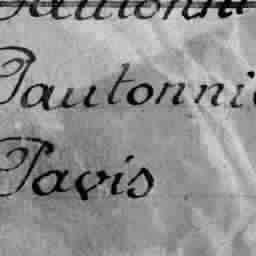 Pautonni
Pavis